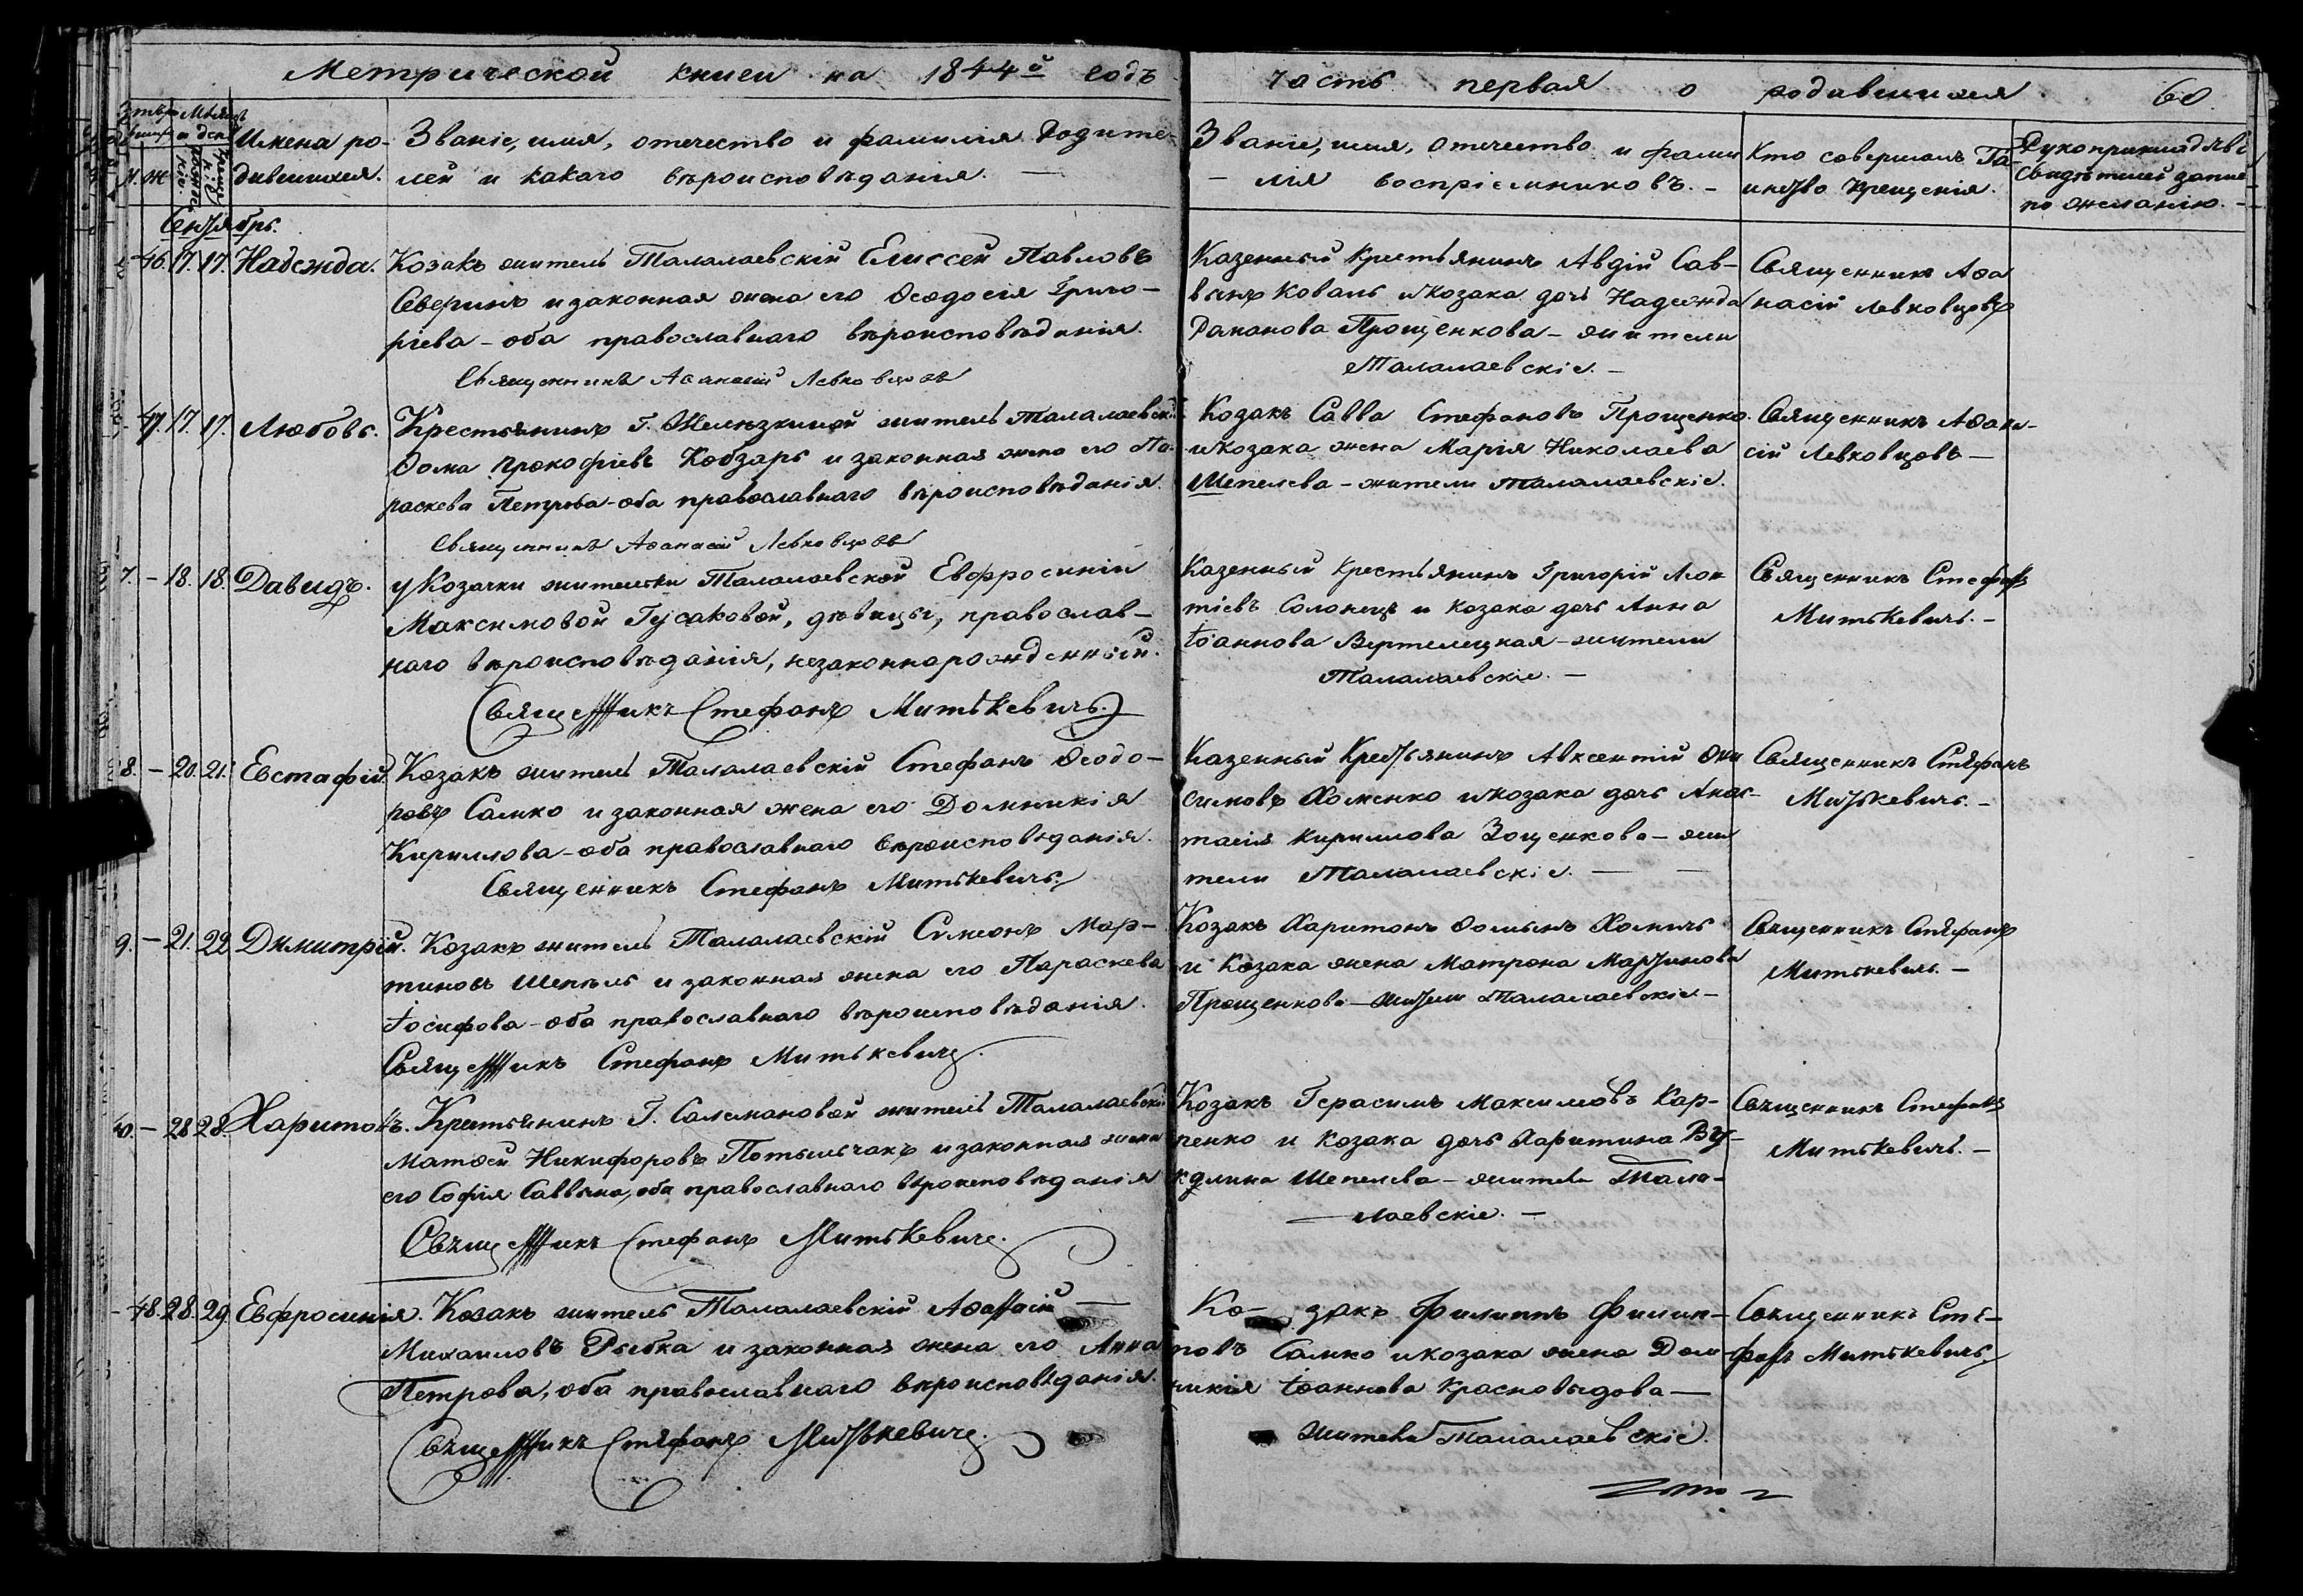 Метрической книги на 1844й годъ
часть первая о родившихся 60.
Имена ро-
дившихся.
Званіе, имя, отечество и фамилія Родите-
лей и какаго вѣроисповѣданія. —
Званіе, имя, отечество и фами
- лія воспріемниковъ. -
Кто совершалъ Та-
инство крещенія.
Рукоприкладств
свидѣтелей запис
по желанію. -
м. ж
Сентябрь.
46. 17. 17. Надежда.
Козакъ житель Талалаевскій Елиссей Павловъ
Северинъ и законная жена его Ѳеодосія Григо-
ріева - оба православнаго вѣроисповѣданія.
Священникъ Аѳанасій Левковцовъ
Казенный Крестьянинъ Авдій Сав-
винъ Коваль и козака дочь Надежда
Романова Прощенкова - жители
Талалаевскіе. -
Священникъ Аѳа
насій Левковцовъ
47. 17. 17. Любовь.
Крестьянинъ Г. житель Талалаевскі
Ѳома Прокофіевъ Кобзарь и законная жена его Па-
раскева Петрова - оба православнаго вѣроисповѣданія.
Священникъ Аѳанасій Левковцовъ
Козакъ Савва Стефановъ Прощенко
и козака жена Марія Николаева
Шепелева - жители Талалаевскіе.
Священникъ Аѳана-
сій Левковцовъ -
7. - 18. 18. Давидъ.
у Козачки жительки Талалаевской Евфросиніи
Максимовой Гусаковой, дѣвицы, православ-
наго вѣроисповѣданія, незаконнорожденный.
Священникъ Стефанъ Митькевичъ.
Казенный Крестьянинъ Григорій Леон
тіевъ Солонецъ и козака дочь Анна
Іоаннова Вертелецкая - жители
Талалаевскіе. -
Священникъ Стефанъ
Митькевичъ. -
8. - 20. 21. Евстафій.
Козакъ житель Талалаевскій Стефанъ Ѳеодо-
ровъ Салко и законная жена его Домникія
Кириллова - оба православнаго вѣроисповѣданія.
Священникъ Стефанъ Митькевичъ.
Казенный Крестьянинъ Авксентій Они
симовъ Хоменко и козака дочь Анас-
тасія Кириллова Зощенкова - жи
тели Талалаевскіе. —
Священникъ Стефанъ
Митькевичъ. -
9. - 21. 22. Димитрій.
Козакъ житель Талалаевскій Симеонъ Мар-
тиновъ Шепель и законная жена его Параскева
Іосифова - оба православнаго вѣроисповѣданія.
Священникъ Стефанъ Митькевичъ.
Козакъ Харитонъ Ѳоминъ Хомичъ
и Козака жена Матрона Мартинова
Прощенкова - жители Талалаевскіе -
Священникъ Стефанъ
Митькевичъ. -
40. - 28 28. Харитонъ.
Крестьянинъ Г. Саламановой житель Талалаевскі
Матѳей Никифоровъ Потыльчакъ и законная жена
его Софія Саввина, оба православнаго вѣроисповѣданія
Священникъ Стефанъ Митькевичъ.
Козакъ Герасимъ Максимовъ Кар-
пенко и Козака дочь Харитина Ву-
колина Шепелева - жители Тала-
лаевскіе. -
Священникъ Стефанъ
Митькевичъ. -
48. 28. 29 Евфросинія.
Козакъ житель Талалаевскій Аѳанасій —
Михаиловъ Рыбка и законная жена его Анна
Петрова, оба православнаго вѣроисповѣданія.
Священникъ Стефанъ Митькевичъ.
Ко- закъ Филиппъ Филип-
повъ Салко и козака жена Дом-
никія Іоаннова Красновидова —
жители Талалаевскіе.
Священникъ Сте-
фанъ Митькевичъ.